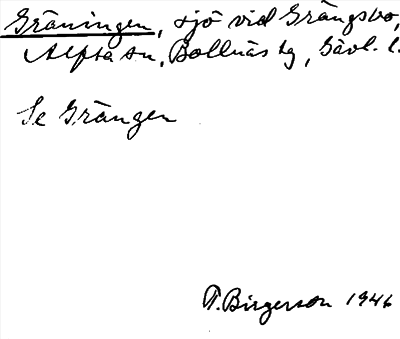 Gräningen, sjö vid Grängsbo,
Alfta sn, Bollnäs tg, Gävl. l.
Se Grängen
T. Birgerson 1946